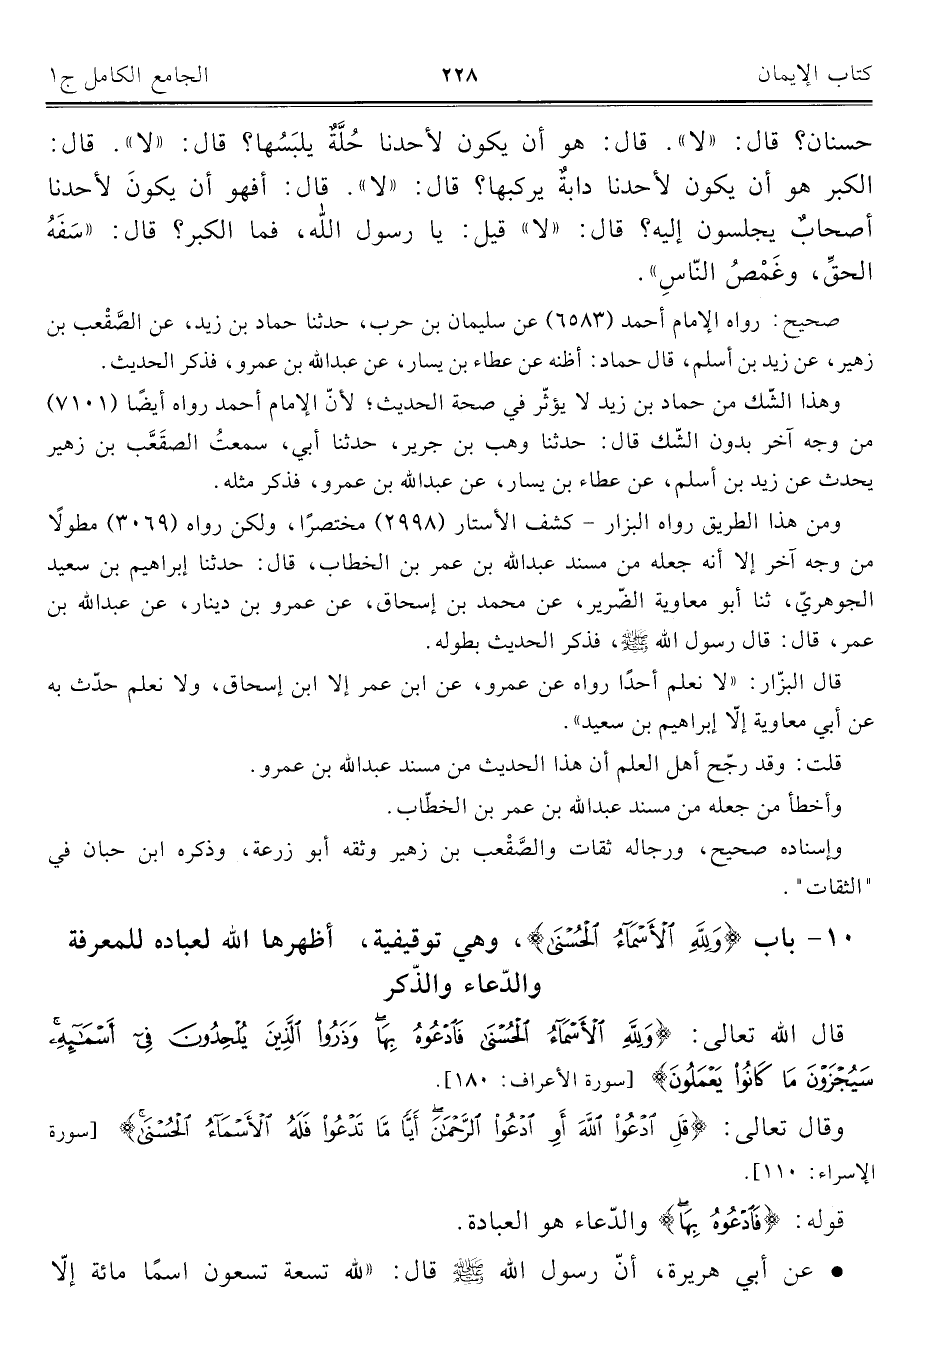 كتاب الإيمان ٢٢٨ الجامع الكامل ج١
حسنان؟ قال: «لا». قال: هو أن يكون لأحدنا حُلَّةٌ يلبَسُها؟ قال: «لا». قال:
الكبر هو أن يكون لأحدنا دابةٌ يركبها؟ قال: «لا». قال: أفهو أن يكونَ لأحدنا
أصحابٌ يجلسون إليه؟ قال: «لا» قيل: يا رسول الله، فما الكبر؟ قال: «سَفَهُ
الحقِّ، وغَمْصُ النّاسِ».
صحيح: رواه الإمام أحمد (٦٥٨٣) عن سليمان بن حرب، حدثنا حماد بن زيد، عن الصَّقْعب بن
زهير، عن زيد بن أسلم، قال حماد: أظنه عن عطاء بن يسار، عن عبدالله بن عمرو، فذكر الحديث.
وهذا الشّك من حماد بن زيد لا يؤثّر في صحة الحديث؛ لأنّ الإمام أحمد رواه أيضًا (٧١٠١)
من وجه آخر بدون الشّك قال: حدثنا وهب بن جرير، حدثنا أبي، سمعتُ الصقعَّب بن زهير
يحدث عن زيد بن أسلم، عن عطاء بن يسار، عن عبدالله بن عمرو، فذكر مثله.
ومن هذا الطريق رواه البزار - كشف الأستار (٢٩٩٨) مختصرًا، ولكن رواه (٣٠٦٩) مطولًا
من وجه آخر إلا أنه جعله من مسند عبدالله بن عمر بن الخطاب، قال: حدثنا إبراهيم بن سعيد
الجوهريّ، ثنا أبو معاوية الضّرير، عن محمد بن إسحاق، عن عمرو بن دينار، عن عبدالله بن
عمر، قال: قال رسول الله ﷺ، فذكر الحديث بطوله.
قال البزّار: «لا نعلم أحدًا رواه عن عمرو، عن ابن عمر إلا ابن إسحاق، ولا نعلم حدّث به
عن أبي معاوية إلّا إبراهيم بن سعيد».
قلت: وقد رجّح أهل العلم أن هذا الحديث من مسند عبدالله بن عمرو.
وأخطأ من جعله من مسند عبدالله بن عمر بن الخطّاب.
وإسناده صحيح، ورجاله ثقات والصَّقْعب بن زهير وثقه أبو زرعة، وذكره ابن حبان في
"الثقات".
١٠- باب ﴿وَلِلَّهِ ٱلْأَسْمَآءُ ٱلْحُسْنَىٰ﴾، وهي توقيفية، أظهرها الله لعباده للمعرفة
والدّعاء والذّكر
قال الله تعالى: ﴿وَلِلَّهِ ٱلْأَسْمَآءُ ٱلْحُسْنَىٰ فَٱدْعُوهُ بِهَا ۖ وَذَرُوا۟ ٱلَّذِينَ يُلْحِدُونَ فِىٓ أَسْمَـٰٓئِهِۦ ۚ
سَيُجْزَوْنَ مَا كَانُوا۟ يَعْمَلُونَ﴾ [سورة الأعراف: ١٨٠].
وقال تعالى: ﴿قُلِ ٱدْعُوا۟ ٱللَّهَ أَوِ ٱدْعُوا۟ ٱلرَّحْمَـٰنَ ۖ أَيًّا مَّا تَدْعُوا۟ فَلَهُ ٱلْأَسْمَآءُ ٱلْحُسْنَىٰ ۚ﴾ [سورة
الإسراء: ١١٠].
قوله: ﴿فَٱدْعُوهُ بِهَا ۖ﴾ والدّعاء هو العبادة.
• عن أبي هريرة، أنّ رسول الله ﷺ قال: «لله تسعة تسعون اسمًا مائة إلّا